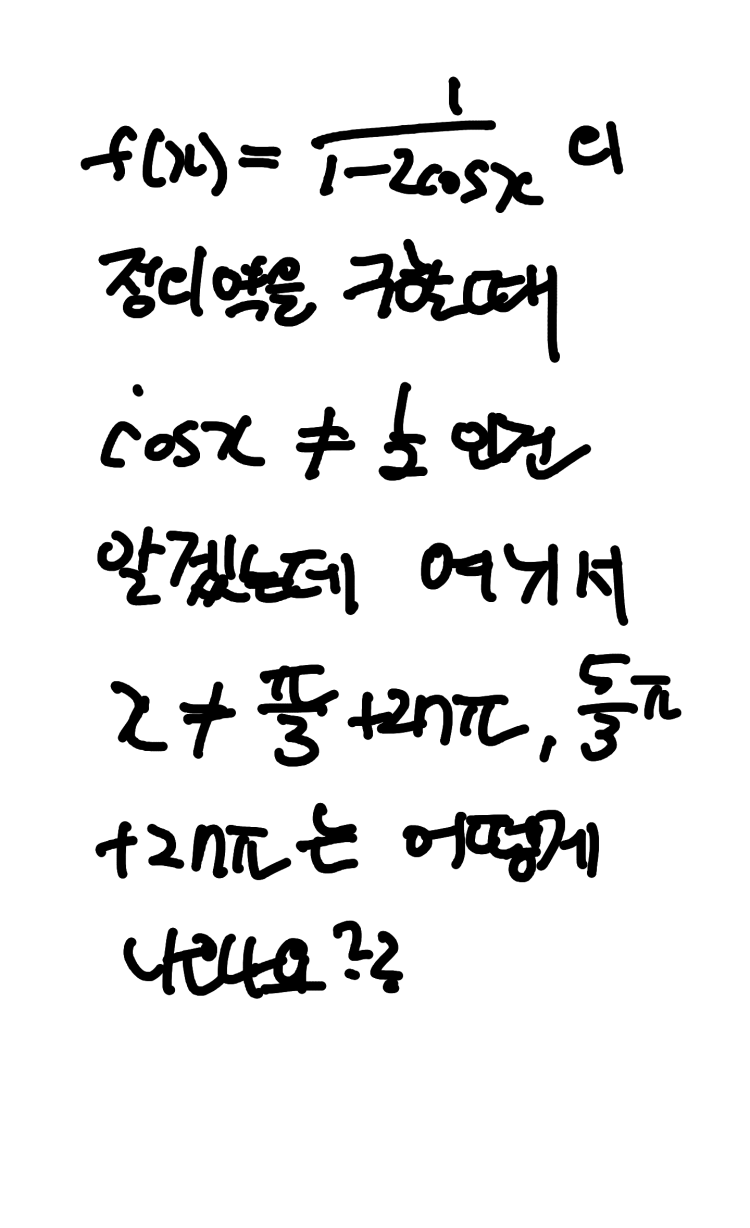 f(x) = 1/(1-2cosx) 의
정의역을 구할때
cosx ≠ 1/2 인건
알겠는데 여기서
x ≠ π/3 +2nπ, 5/3 π
+2nπ는 어떻게
나오나요??